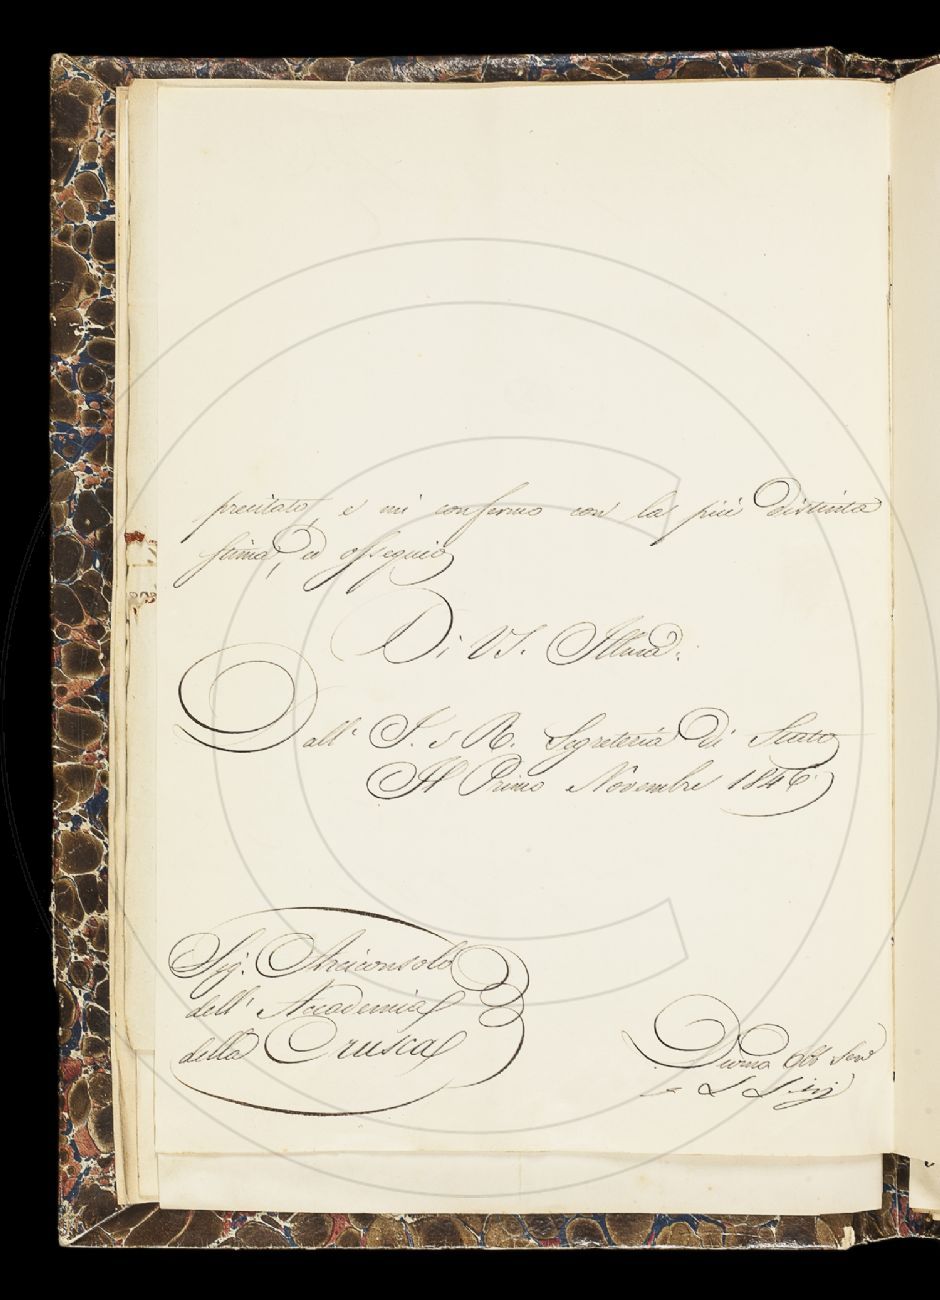 precitato, e mi confermo con la più distinta
stima, ed ossequio
Di VS. Illma.
Dall' I. e R. Segreteria di Stato
Il Primo Novembre 1846
Sig. Arciconsolo
dell' Accademia
della Crusca
Devmo Obb Serv